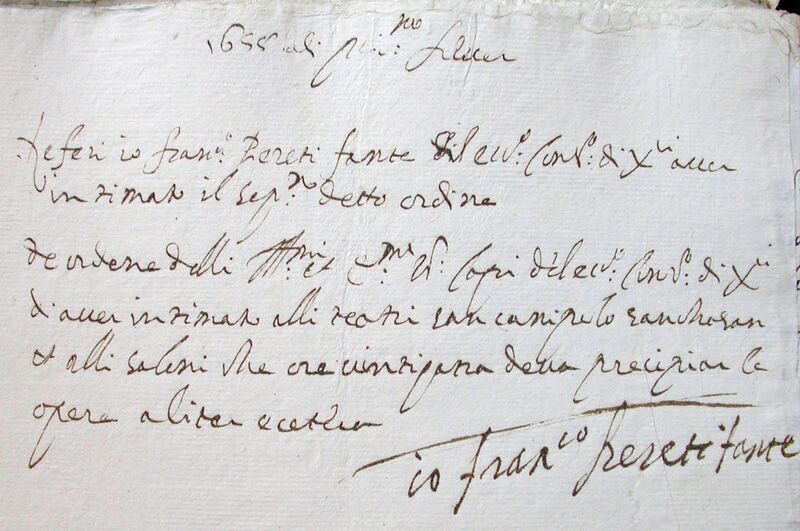 1655 adi pri:mo
Referi io fran:co Pereti fante dil ecc:o Cons:o di X:ci aver
intimato il sop:to detto ordine
de ordene delli Ill:mi et Ecc:mi S:ri Capi dil ecc:o Cons:o di X:ci
d'aver intimato alli teatri san canipolo san chasan
et alli saloni che ore deva precipiar le
opere aliter ecetera
io fran:co Pereti fante